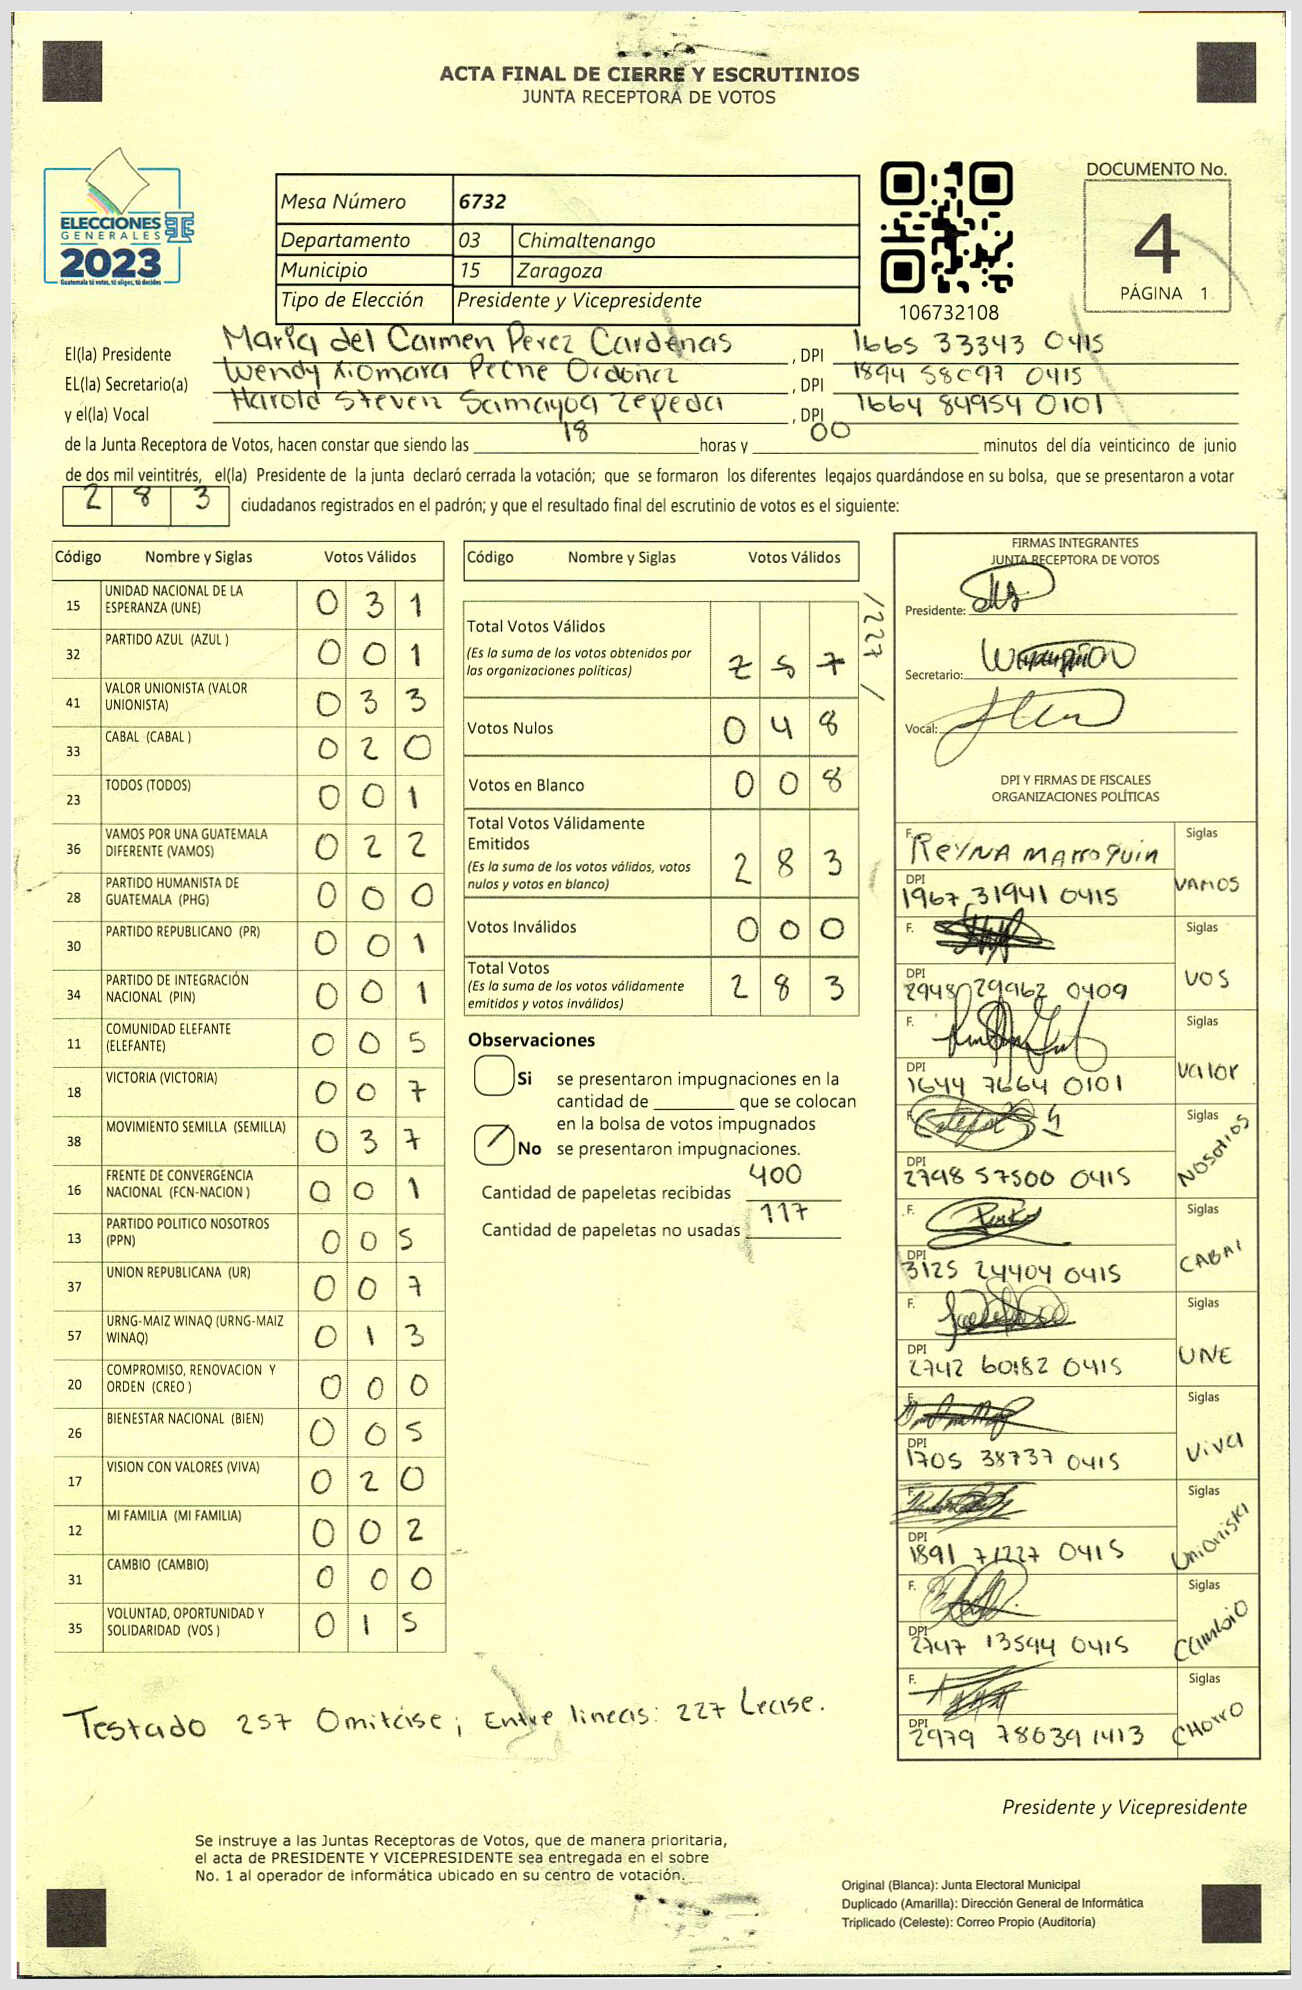 ACTA FINAL DE CIERRE Y ESCRUTINIOS
JUNTA RECEPTORA DE VOTOS
ELECCIONES
GENERALES
2023
Guatemala tú votas, tú eliges, tú decides
Mesa Número 6732
Departamento 03 Chimaltenango
Municipio 15 Zaragoza
Tipo de Elección Presidente y Vicepresidente
106732108
DOCUMENTO No.
4
PÁGINA 1
El(la) Presidente María del Carmen Perez Cardenas, DPI 1665 33343 0415
EL(la) Secretario(a) Wendy Xiomara Ordoñez, DPI 1894 58097 0415
y el(la) Vocal Harold Steven Samayoa Zepeda, DPI 1664 84954 0101
de la Junta Receptora de Votos, hacen constar que siendo las 18 horas y 00 minutos del día veinticinco de junio
de dos mil veintitrés, el(la) Presidente de la junta declaró cerrada la votación; que se formaron los diferentes legajos guardándose en su bolsa, que se presentaron a votar
2 8 3 ciudadanos registrados en el padrón; y que el resultado final del escrutinio de votos es el siguiente:
Código Nombre y Siglas Votos Válidos
15 UNIDAD NACIONAL DE LA ESPERANZA (UNE) 0 3 1
32 PARTIDO AZUL (AZUL ) 0 0 1
41 VALOR UNIONISTA (VALOR UNIONISTA) 0 3 3
33 CABAL (CABAL ) 0 2 0
23 TODOS (TODOS) 0 0 1
36 VAMOS POR UNA GUATEMALA DIFERENTE (VAMOS) 0 2 2
28 PARTIDO HUMANISTA DE GUATEMALA (PHG) 0 0 0
30 PARTIDO REPUBLICANO (PR) 0 0 1
34 PARTIDO DE INTEGRACIÓN NACIONAL (PIN) 0 0 1
11 COMUNIDAD ELEFANTE (ELEFANTE) 0 0 5
18 VICTORIA (VICTORIA) 0 0 7
38 MOVIMIENTO SEMILLA (SEMILLA) 0 3 7
16 FRENTE DE CONVERGENCIA NACIONAL (FCN-NACION ) 0 0 1
13 PARTIDO POLITICO NOSOTROS (PPN) 0 0 5
37 UNION REPUBLICANA (UR) 0 0 7
57 URNG-MAIZ WINAQ (URNG-MAIZ WINAQ) 0 1 3
20 COMPROMISO, RENOVACION Y ORDEN (CREO ) 0 0 0
26 BIENESTAR NACIONAL (BIEN) 0 0 5
17 VISION CON VALORES (VIVA) 0 2 0
12 MI FAMILIA (MI FAMILIA) 0 0 2
31 CAMBIO (CAMBIO) 0 0 0
35 VOLUNTAD, OPORTUNIDAD Y SOLIDARIDAD (VOS ) 0 1 5
Código Nombre y Siglas Votos Válidos
Total Votos Válidos
(Es la suma de los votos obtenidos por
las organizaciones políticas) 2 5 7 /227/
Votos Nulos 0 4 8
Votos en Blanco 0 0 8
Total Votos Válidamente
Emitidos
(Es la suma de los votos válidos, votos
nulos y votos en blanco) 2 8 3
Votos Inválidos 0 0 0
Total Votos
(Es la suma de los votos válidamente
emitidos y votos inválidos) 2 8 3
Observaciones
Si se presentaron impugnaciones en la
cantidad de ________ que se colocan
en la bolsa de votos impugnados
No se presentaron impugnaciones.
Cantidad de papeletas recibidas 400
Cantidad de papeletas no usadas 117
FIRMAS INTEGRANTES
JUNTA RECEPTORA DE VOTOS
Presidente:
Secretario:
Vocal:
DPI Y FIRMAS DE FISCALES
ORGANIZACIONES POLÍTICAS
F. REYNA MARROQUIN Siglas
DPI 1967 31941 0415 VAMOS
F. Siglas
DPI 2948 29962 0409 VOS
F. Siglas
DPI 1644 7664 0101 Valor
F. Siglas
DPI 2798 57500 0415 NOSOTIOS
F. Siglas
DPI 3125 24404 0415 CABAI
F. Siglas
DPI 2742 60182 0415 UNE
F. Siglas
DPI 1705 38737 0415 Viva
F. Siglas
DPI 1891 71227 0415
F. Siglas
DPI 2747 13594 0415 Cambio
F. Siglas
DPI 2979 78639 1413 CHORRO
Testado 257 Omitase; Entre lineas: 227 Lease.
Presidente y Vicepresidente
Se instruye a las Juntas Receptoras de Votos, que de manera prioritaria,
el acta de PRESIDENTE Y VICEPRESIDENTE sea entregada en el sobre
No. 1 al operador de informática ubicado en su centro de votación.
Original (Blanca): Junta Electoral Municipal
Duplicado (Amarilla): Dirección General de Informática
Triplicado (Celeste): Correo Propio (Auditoría)